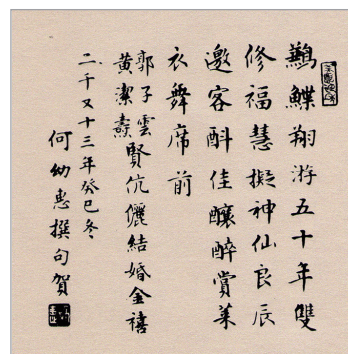 鶼鰈翔游五十年雙
修福慧擬神仙良辰
邀客酙佳釀醉賞萊
衣舞席前
郭子雲
黃潔壽
賢伉儷結婚金禧
二千又十三年癸巳冬
何幼惠撰句賀